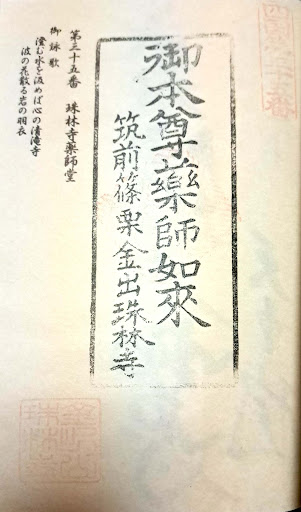 第三十五番　珠林寺薬師堂
御詠歌
澄む水を汲めば心の清滝寺
波の花散る岩の羽衣
御本尊薬師如來
筑前篠栗金出珠林寺